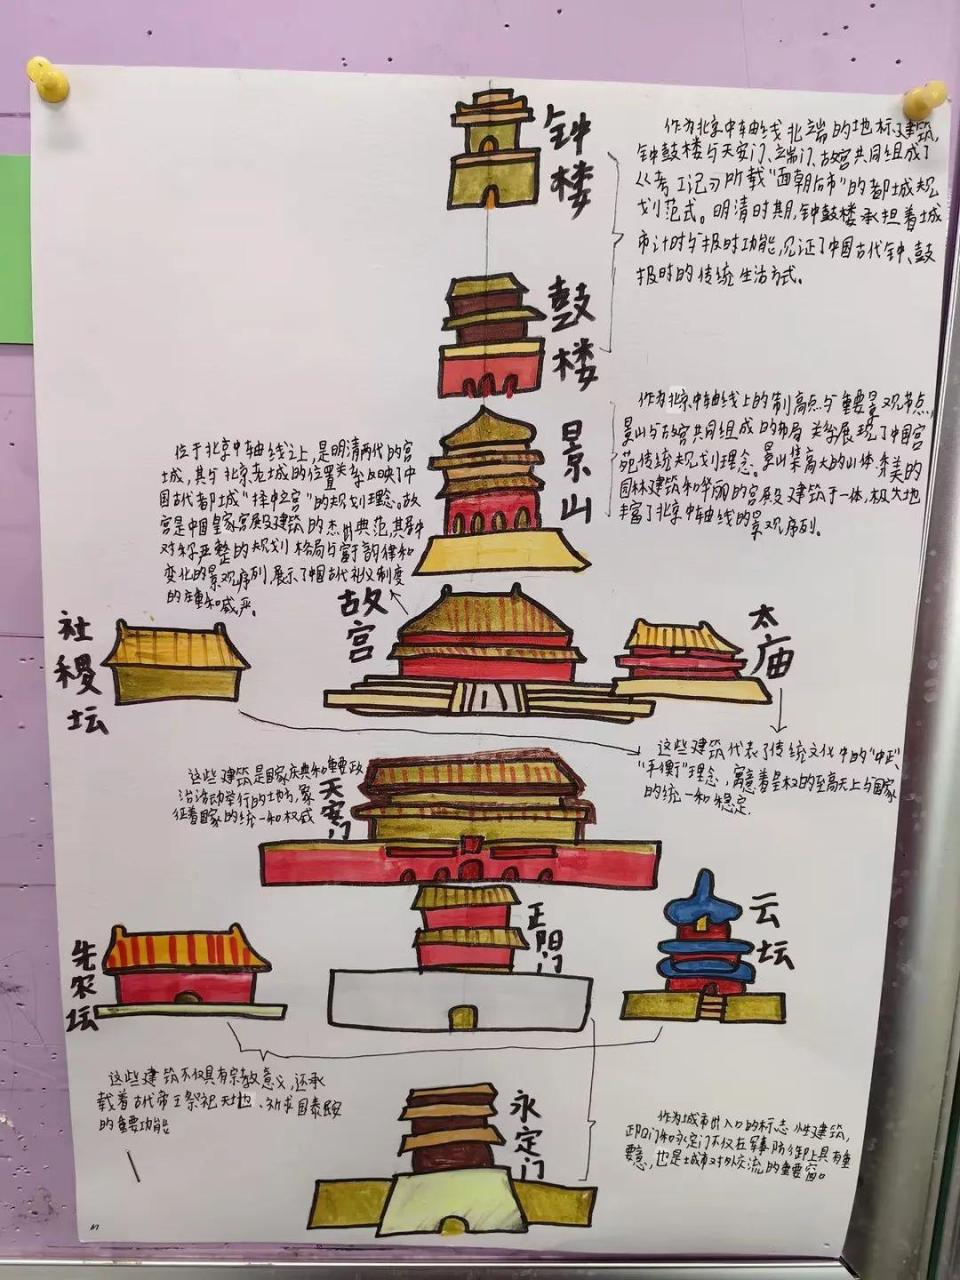 钟楼
作为北京中轴线北端的地标建筑,
钟鼓楼与天安门、端门、故宫共同组成了
《考工记》所载“面朝后市”的都城规
划范式。明清时期,钟鼓楼承担着城
市计时与报时功能,见证了中国古代钟、鼓
报时的传统生活方式。
鼓楼
作为北京中轴线上的制高点与重要景观节点,
景山与古宫共同组成的布局关系展现了中国宫
苑传统规划理念。景山集高大的山体、秀美的
园林建筑和华丽的宫殿建筑于一体,极大地
丰富了北京中轴线的景观序列。
景山
位于北京中轴线之上,是明清两代的宫
城,其与北京老城的位置关系反映了中
国古代都城“择中立宫”的规划理念。故
宫是中国皇家宫殿建筑的杰出典范,其居中
对称严整的规划格局与富于韵律和
变化的景观序列,展示了中国古代礼义制度
的庄重和威严。
故宫
社稷坛
太庙
这些建筑代表了传统文化中的“中正”
“平衡”理念,寓意着皇权的至高无上与国家
的统一和稳定.
这些建筑是国家庆典和重要政
治活动举行的地方,象
征着国家的统一和权威
天安门
正阳门
云坛
先农坛
这些建筑不仅具有宗教意义,还承
载着古代帝王祭祀天地、祈求国泰民安
的重要功能
永定门
作为城市出入口的标志性建筑,
正阳门和永定门不仅在军事防御上具有重
要意,也是城市对外交流的重要窗口